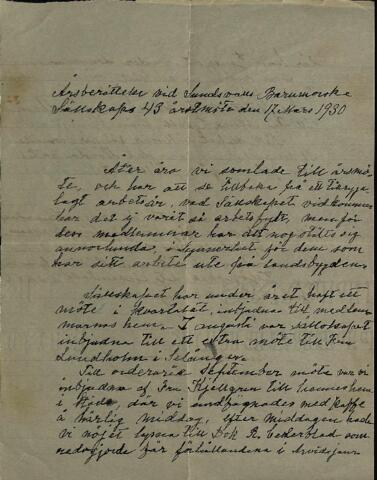 Årsberättelse vid Sundsvalls Barnmorske
Sällskaps 43 årsmöte den 17 Mars 1930
Åter äro vi samlade till årsmö-
te, och har att se tillbaka på ett tilrygga-
lagt arbetsår, vad Sällskapet vidkommer
har det ej varit så arbetsfylt, men för
dess medlemmar har det nog ställt sig
annorlunda, i synnerhet för dem som
har sitt arbete ute på landsbygden.
Sällskapet har under året haft ett
möte i kvartalet, inbjudna till medlem
marnas hem. I augusti var sällskapet
inbjudna till ett extra möte till Fru
Lundholm i Selånger.
Till ordinarie September möte var vi
inbjudna af Fru Kjellgren till hennes hem
i Stöde, där vi undfägnades med kaffe
å härlig middag, efter middagen hade
vi nöjet lyssna till Dok R. Cederblad som
redogjorde för förhållandena i Arvidsjaur